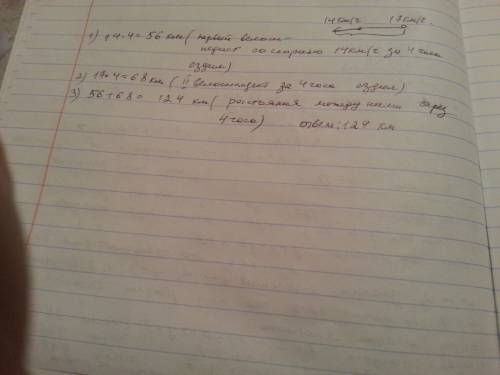 14км/г 17км/г.
1) 14·4=56км (первый велоси-
педист со скоростью 14км/г за 4 часа
ездил)
2) 17·4=68км (II велосипедист за 4 часа ездил)
3) 56+68= 124 км (ростояния между ними через
4 часа) ответ: 124 км